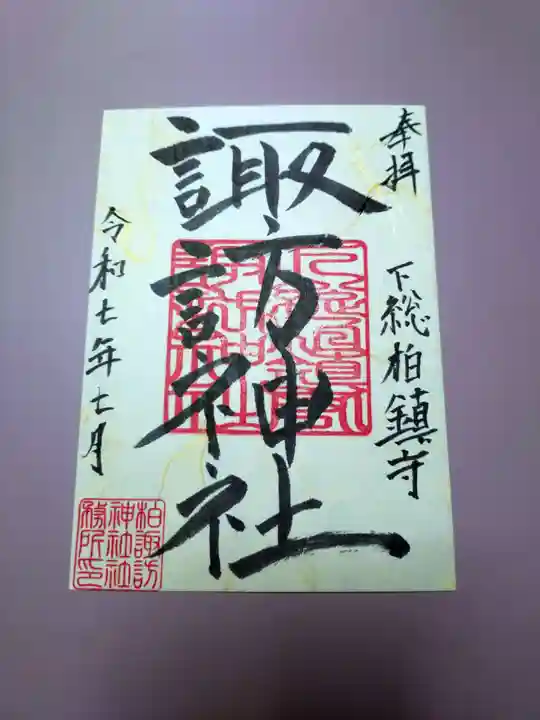 奉拝
下総柏鎮守
諏訪神社
令和七年七月
柏諏訪
神社社
務所印